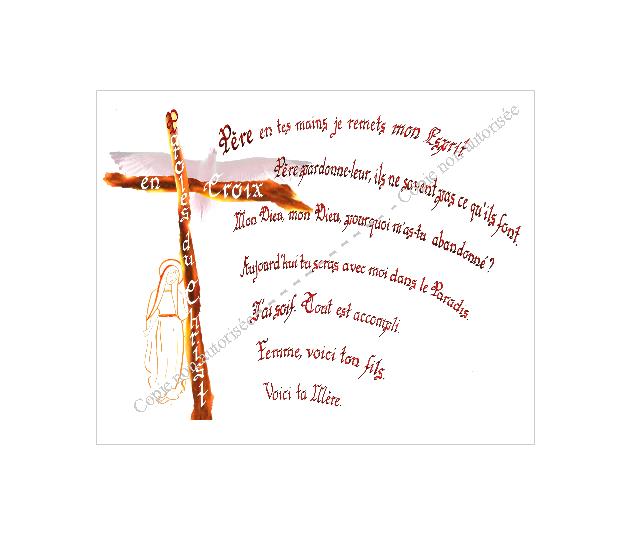 Paroles du Christ
en Croix
Père en tes mains je remets mon Esprit
Père pardonne-leur, ils ne savent pas ce qu'ils font.
Mon Dieu, mon Dieu, pourquoi m'as-tu abandonné ?
Aujourd'hui tu seras avec moi dans le Paradis.
J'ai soif. Tout est accompli.
Femme, voici ton fils.
Voici ta Mère.
Copie non autorisée --- Copie non autorisée